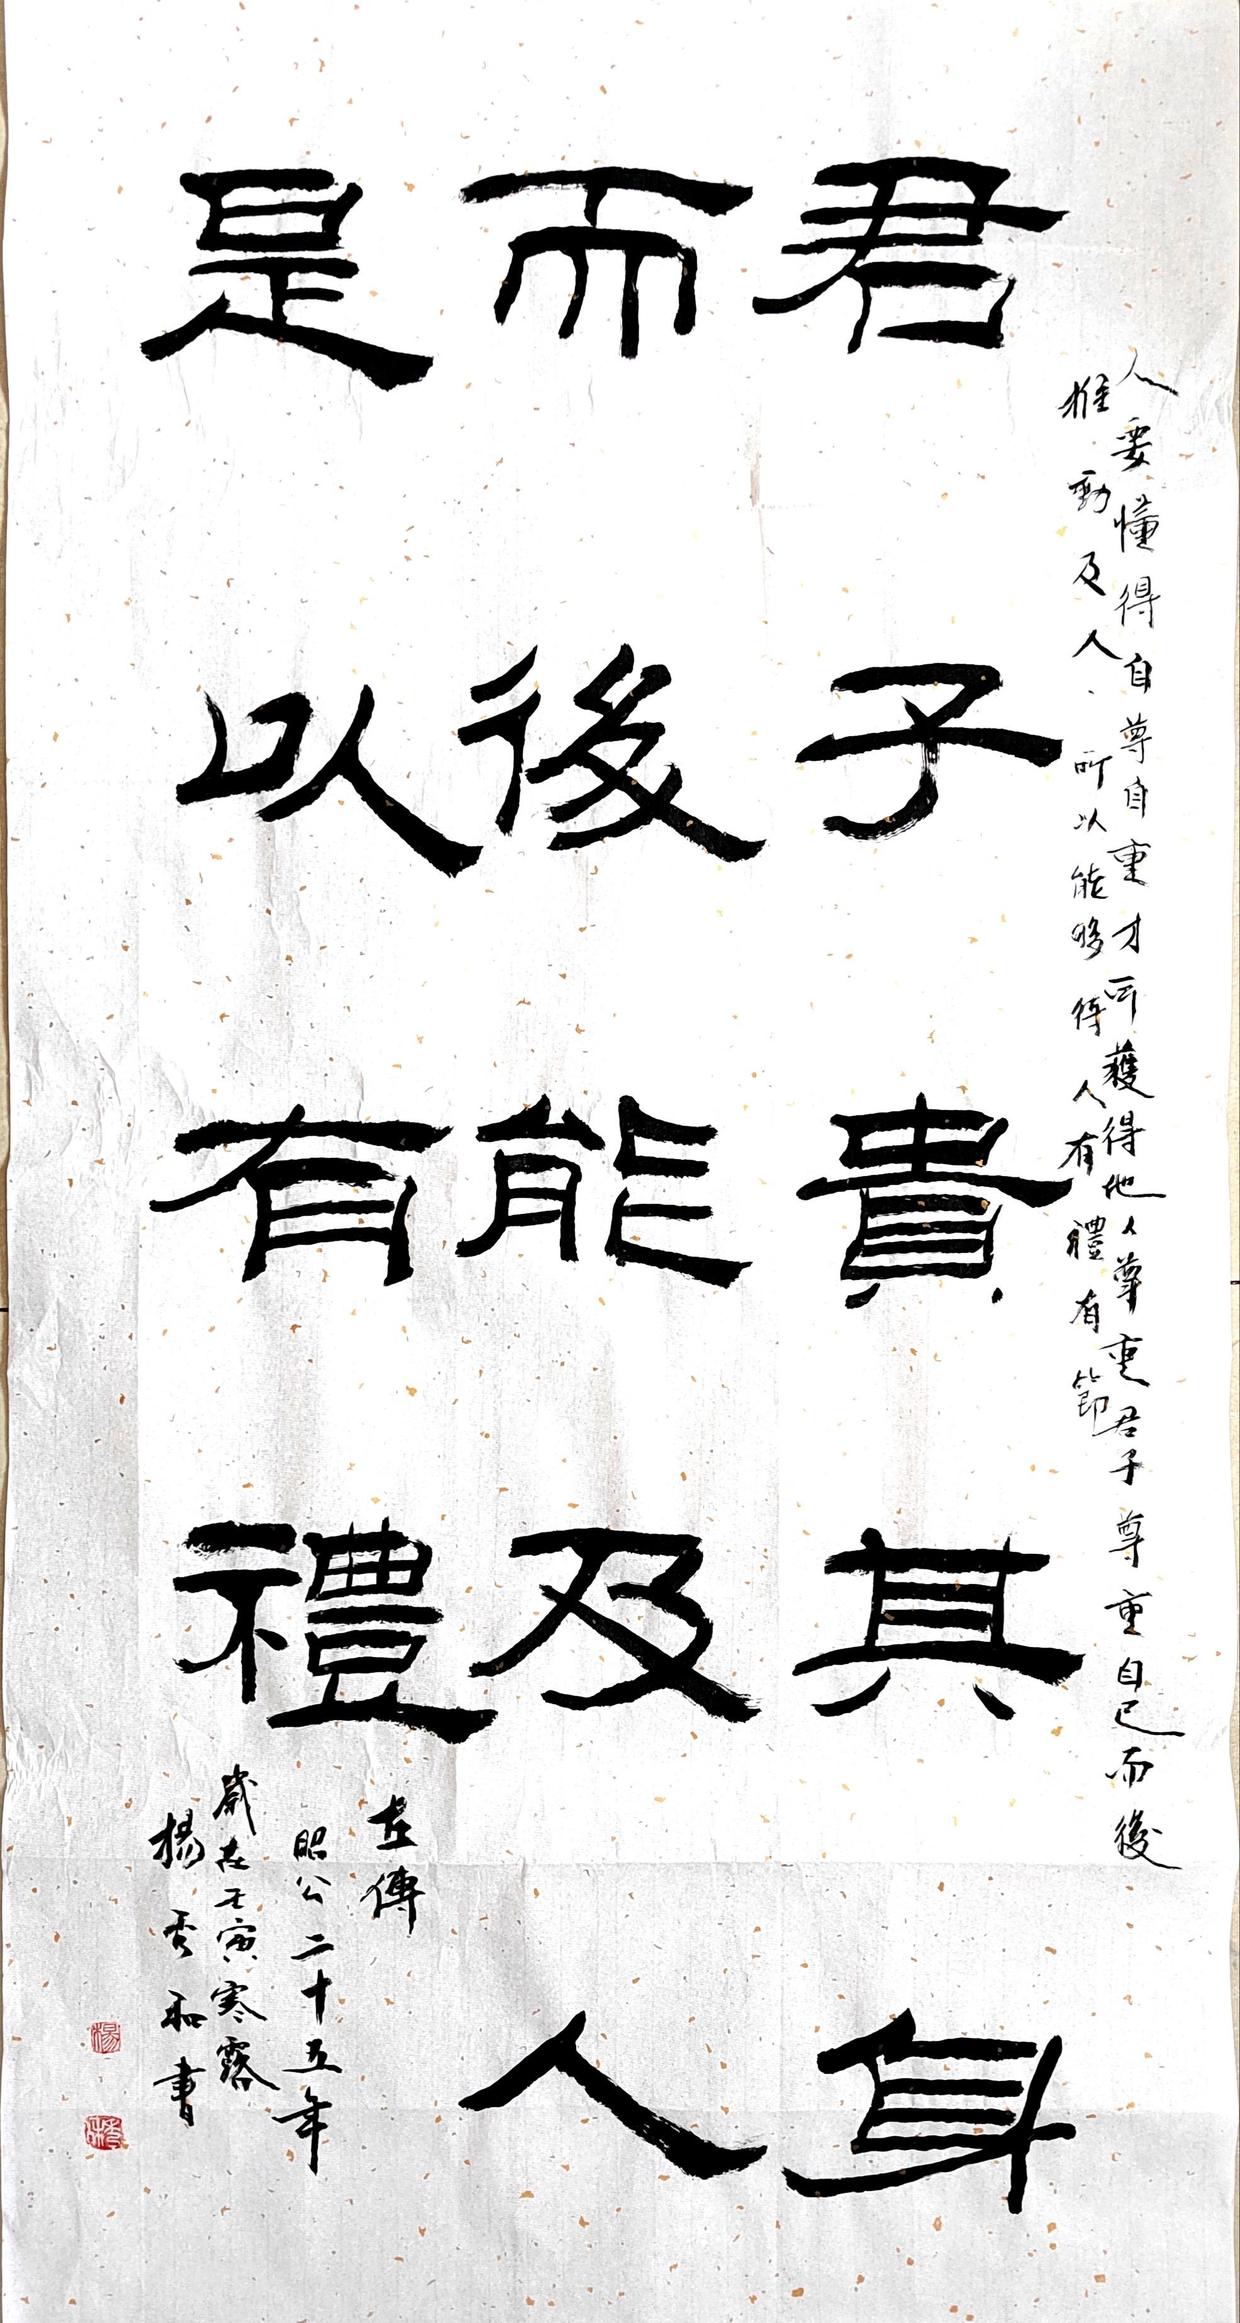 人要懂得自尊自重才可獲得他人尊重君子尊重自己而後
推動及人、所以能够得人有禮有節
君子貴其身
而後能及人
是以有禮
左傳
昭公二十五年
歲在壬寅寒露
楊秀和書
楊
秀和